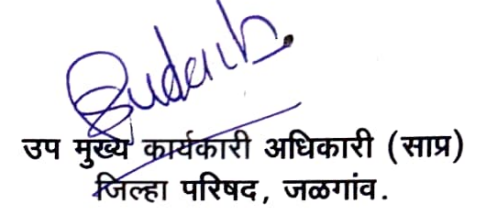 उप मुख्य कार्यकारी अधिकारी (साप्र)
जिल्हा परिषद, जळगांव.